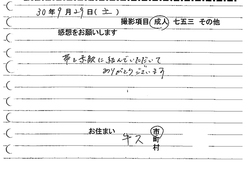 30年9月29日(土)
撮影項目 成人 七五三 その他
感想をお願いします
帯を素敵に結んでいただいて
ありがとうございます
お住まい 市
町
村